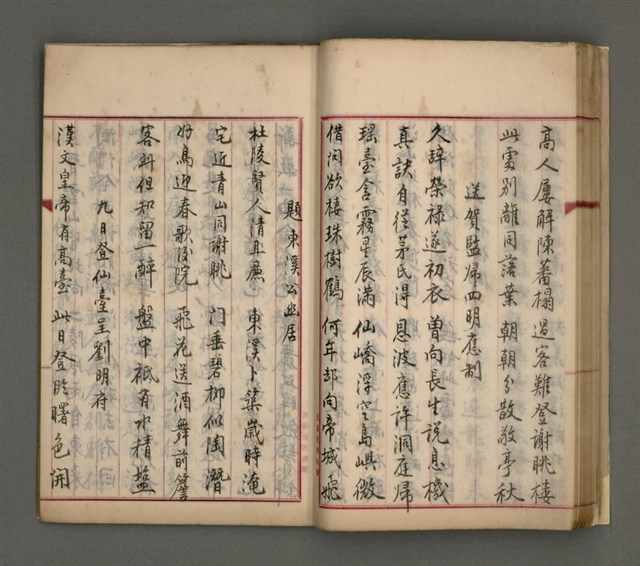 高人屢解陳蕃榻 過客難登謝朓樓
此處別離同落葉 朝朝分散敬亭秋
送賀監歸四明應制
久辭榮祿遂初衣 曾向長生說息機
真訣自從茅氏得 恩波應許洞庭歸
瑤臺含霧星辰滿 仙嶠浮空島嶼微
借問欲棲珠樹鶴 何年却向帝城飛
題東溪公幽居
杜陵賢人清且廉 東溪卜築歲時淹
宅近青山同謝朓 門垂碧柳似陶潛
好鳥迎春歌後院 飛花送酒舞前簷
客到但知留一醉 盤中祇有水精鹽
九日登仙臺呈劉明府
漢文皇帝有高臺 此日登臨曙色開